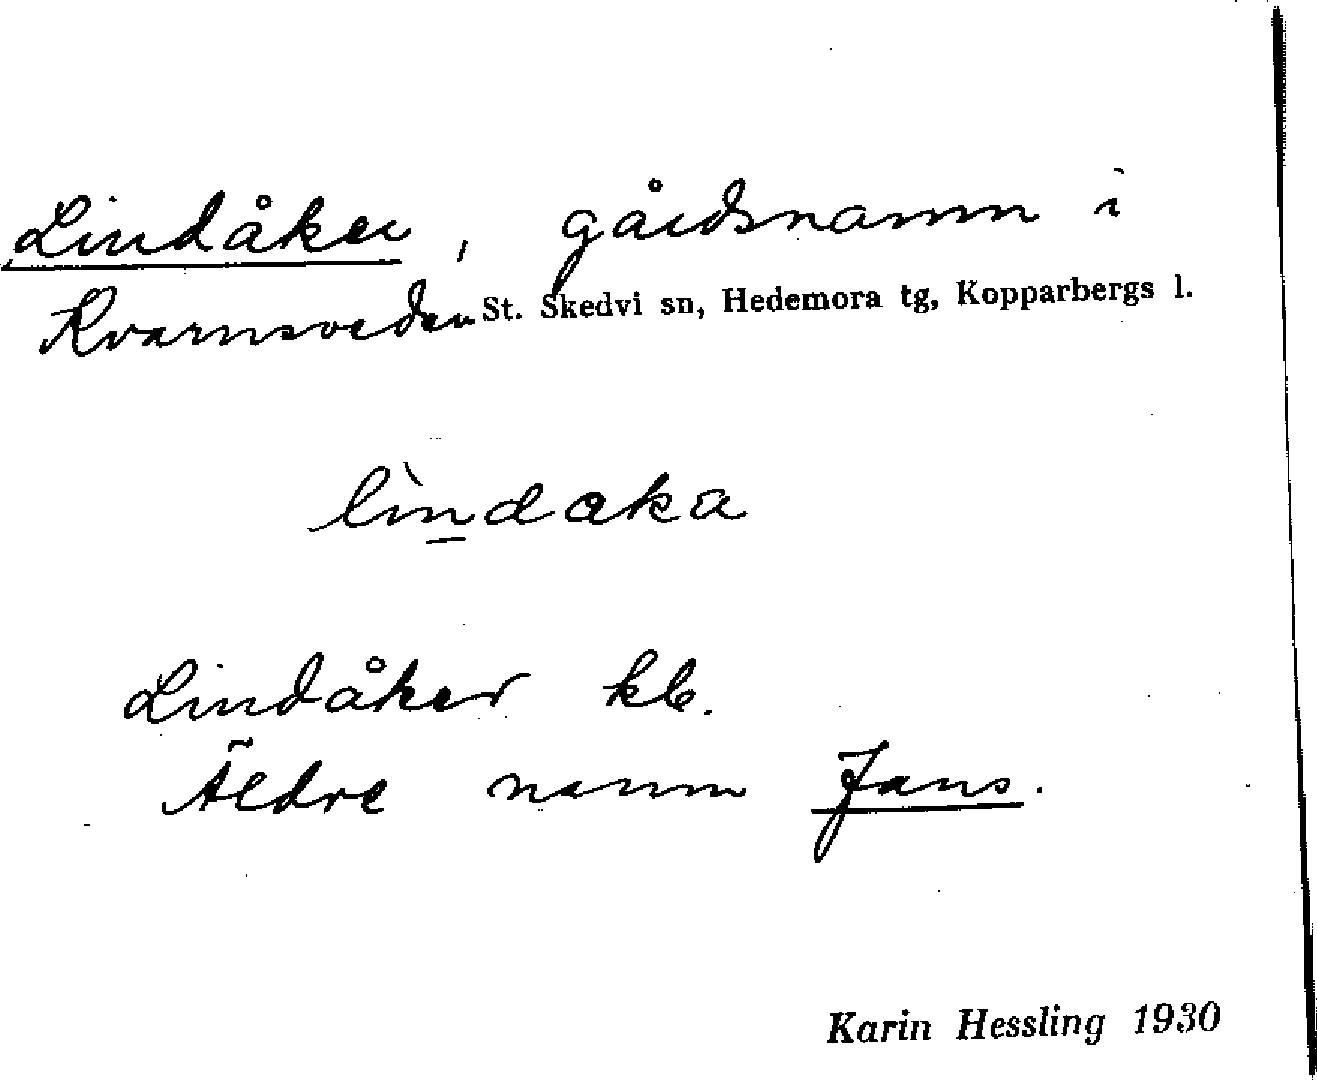 Lindåker, gårdsnamn i
Kvarnsveden St. Skedvi sn, Hedemora tg, Kopparbergs l.
lìndaka
Lindåker kb.
Äldre namn Jans.
Karin Hessling 1930